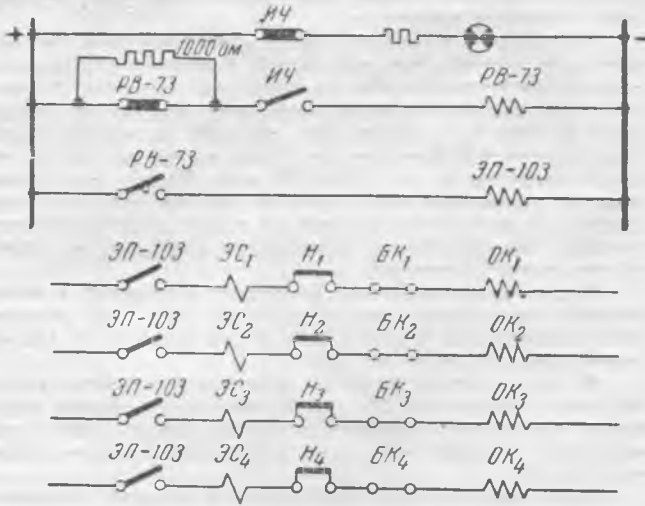 + ИЧ -
1000 ом
РВ-73 ИЧ РВ-73
РВ-73 ЭП-103
ЭП-103 ЭС₁ Н₁ БК₁ ОК₁
ЭП-103 ЭС₂ Н₂ БК₂ ОК₂
ЭП-103 ЭС₃ Н₃ БК₃ ОК₃
ЭП-103 ЭС₄ Н₄ БК₄ ОК₄